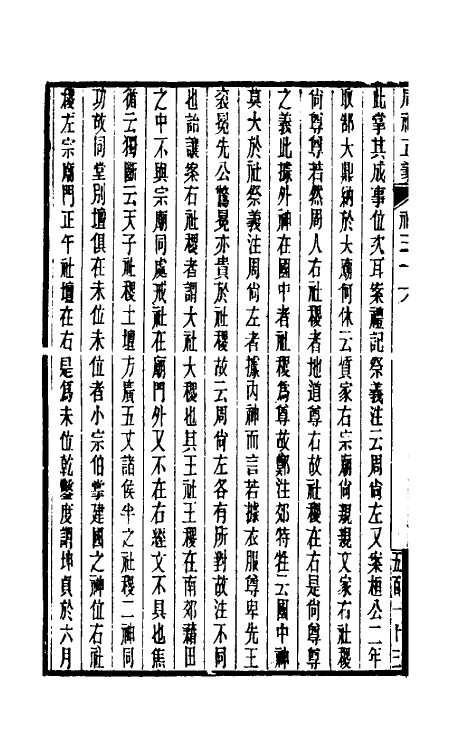 周禮正義
禮三十六
五百一十三
此掌其成事位次耳案禮記祭義注云周尙左又案桓公二年
取郜大鼎納於大廟何休云質家右宗廟尙親親文家右社稷
尙尊尊若然周人右社稷者地道尊右故社稷在右是尙尊尊
之義此據外神在國中者社稷爲尊故鄭注郊特牲云國中神
莫大於社祭義注周尙左者據內神而言若據衣服尊卑先王
袞冕先公驚冕亦貴於社稷故云周尙左各有所對故注不同
也詒讓案右社稷者謂大社大稷也其王社王稷在南郊藉田
之中不與宗廟同處戒社在廟門外又不在右經文不具也焦
循云獨斷云天子社稷土壇方廣五丈諸侯半之社稷二神同
功故同堂別壇俱在未位未位者小宗伯掌建國之神位右社
稷左宗廟門正午社壇在右是爲未位乾鑿度謂坤貞於六月